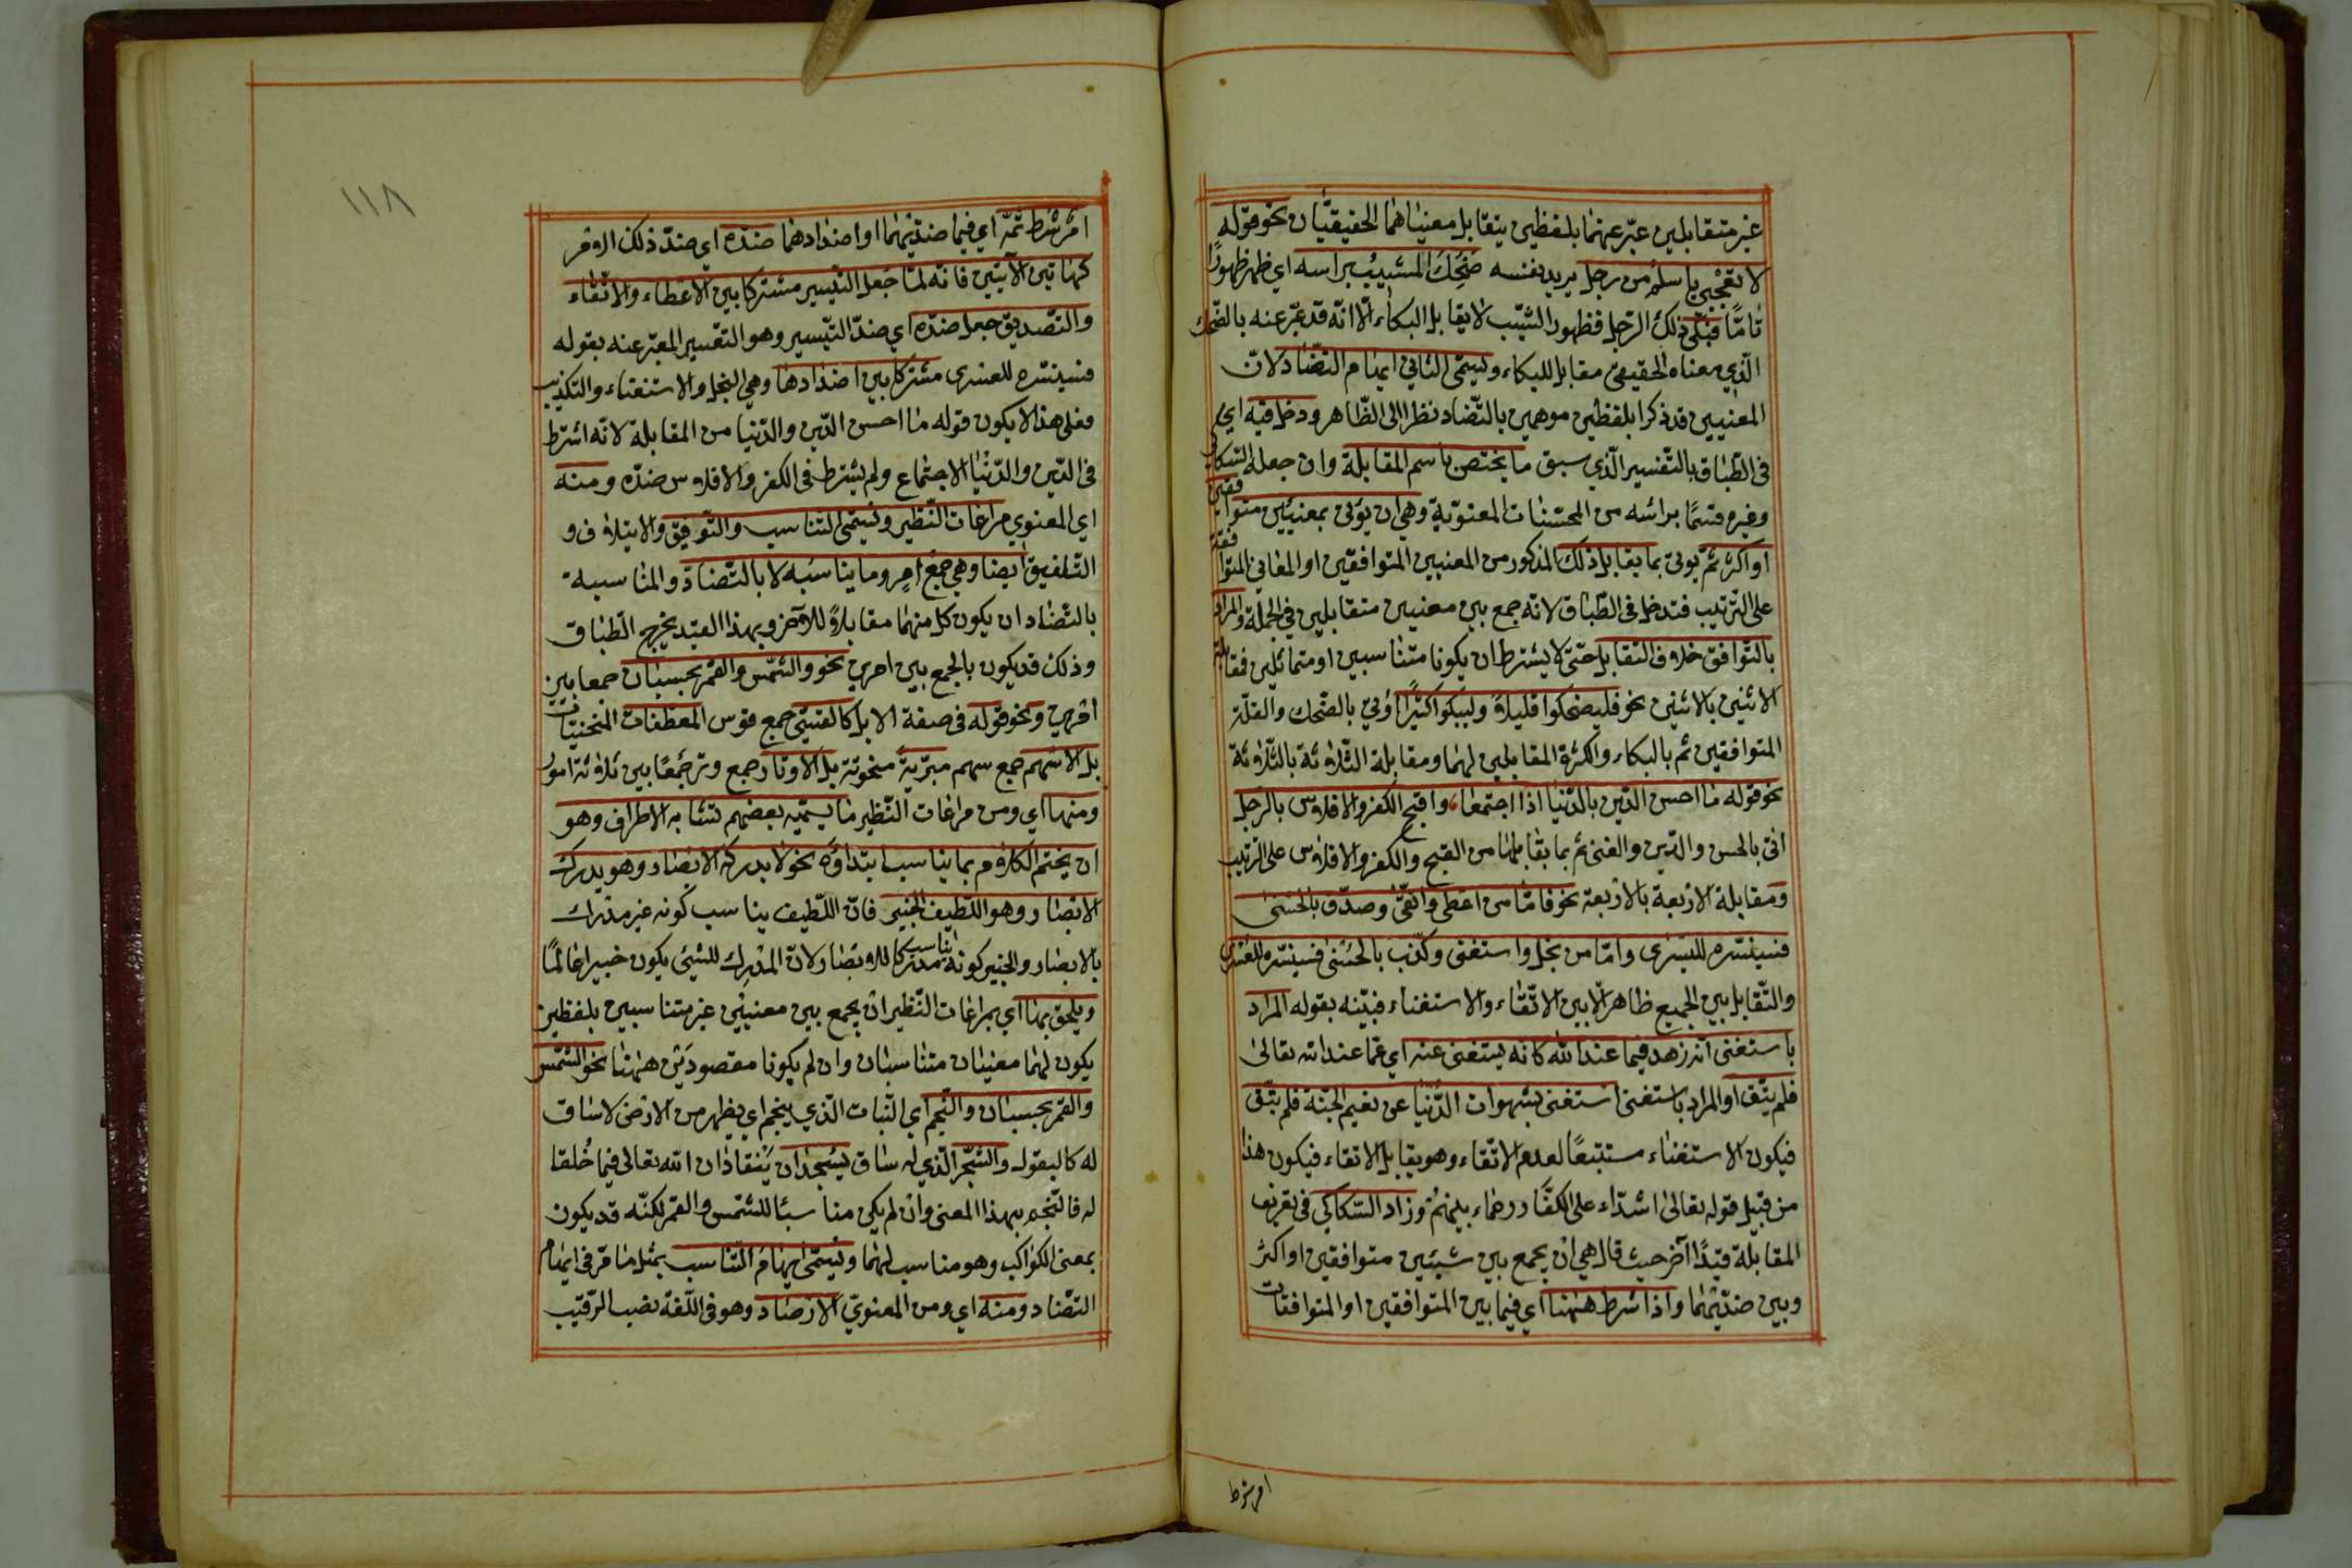 غير متقابلين عبّر عنهما بلفظين يتقابل معنياهما الحقيقيّان نحو قوله
لا تعجبي يا سلم من رجل يريد نفسه ضَحِكَ المشيبُ براسه اي ظهر ظهورًا
تامّا فبكى ذلك الرّجل فظهور الشّيب لا يقابل البكاء الّا انّه قد عبّر عنه بالضّحك
الّذي معناه الحقيقي مقابل للبكاء ويسمّى الثاني ايهام التضّاد لانّ
المعنيين قد ذكرا بلفظين موهمين بالتّضاد نظرا الى الظّاهر ودخل فيه اي
في الطّباق بالتّفسير الّذي سبق ما يختص باسم المقابلة وان جعله السّكاكي
وغيره قسمًا براسه من المحسّنات المعنويّة وهي ان يؤتى بمعنيين متوافقين
او اكثر ثمّ يؤتى بما يقابل ذلك المذكور من المعنيين المتوافقين او المعاني المتوافقة
على التّرتيب فتدخل في الطّباق لانّه جمع بين معنيين متقابلين في الجملة والمراد
بالتّوافق خلاف التقابل حتّى لا يشترط ان يكونا متناسبين او متماثلين فمقابلة
الاثنين بالاثنين نحو فليضحكوا قليلاً وليبكوا كثيرًا اُتي بالضّحك والقلّة
المتوافقين ثم بالبكاء والكثرة المقابلين لهما ومقابلة الثّلاثة بالثّلاثة
نحو قوله ما احسن الدّين بالدّنيا اذا اجتمعا، واقبح الكفر والافلاس بالرّجل
اتى بالحسن والدّين والغنى ثم بما يقابلها من القبح والكفر والافلاس على الترتيب
ومقابلة الاربعة بالاربعة نحو فامّا من اعطى واتّقى وصدّق بالحسنى
فسنيسّره لليسرى وامّا من بخل واستغنى وكذّب بالحسنى فسنيسّره للعسرى
والتّقابل بين الجميع ظاهر الّا بين الاتّقاء والاستغناء فبيّنه بقوله المراد
باستغنى انه زهد فيما عند الله كانه يستغنى عنه اي عمّا عند الله تعالى
فلم يتّق او المراد باستغنى استغنى بشهوات الدّنيا عن نعيم الجنّة فلم يتّق
فيكون الاستغناء مستتبعًا لعدم الاتّقاء وهو يقابل الاتقاء فيكون هذا
من قبيل قوله تعالى اشدّاء على الكفّار رحماء بينهمْ وزاد السّكاكي في تعريف
المقابلة قيدًا آخر حيث قال هي ان يجمع بين شيئين متوافقين او اكثر
وبين ضدّيهما واذا شرط ههنا اي فيما بين المتوافقين او المتوافقات
امر شرط
١١٨
امر شرط ثمّه اي فيما ضدّيهما او اضدادهما ضدّه اي ضدّ ذلك الامر
كهاتين الآيتين فانّه لمّا جعل التّيسير مشتركا بين الاعطاء والاتّقاء
والتّصديق جعل ضدّه اي ضدّ التّيسير وهو التّعسير المعبّر عنه بقوله
فسنيسّره للعسرى مشتركا بين اضدادها وهي البخل والاستغناء والتكذيب
فعلى هذا لا يكون قوله ما احسن الدّين والدّنيا من المقابلة لانّه اشترط
في الدّين والدّنيا الاجتماع ولم يشترط في الكفر والافلاس ضدّه ومنه
اي المعنوي مراعات النّظير ويسمّى التناسب والتّوفيق والايتلاف و
التّلفيق ايضا وهي جمع امرٍ وما يناسبه لا بالتّضادّ والمناسبة
بالتّضاد ان يكون كل منهما مقابلاً للآخر وبهذا القيد يخرج الطّباق
وذلك قد يكون بالجمع بين امرين نحو والشّمس والقمر بحسبان جمعا بين
امرين ونحو قوله في صفة الابل كالقسّي جمع قوس المعطفات المنحنيات
بل الاسْهم جمع سهم مبريّة منحوتة بل الاوتار جمع وتر جمعًا بين ثلاثة امور
ومنها اي ومن مراعات النّظير ما يسمّيه بعضهم تشابه الاطراف وهو
ان يختم الكلام بما يناسب ابتداؤه نحو لا يدركه الابصار وهو يدرك
الابصار وهو اللّطيف الخبير فانّ اللّطيف يناسب كونه غير مدرك
بالابصار والخبير يناسب كونه مدركا للابصار لانّ المدرِك للشيئ يكون خبيرا عالمًا
ويلحق بها اي بمراعات النّظير ان يجمع بين معنيين غير متناسبين بلفظين
يكون لهما معنيان متناسبان وان لم يكونا مقصودَين ههنا نحو الشّمس
والقمر بحسبان والنّجم اي النّبات الّذي ينجم اي يظهر من الارض لا ساق
له كالبقول والشّجر الّذي له ساق يسْجدان يَنقاذان الله تعالى فيما خُلقا
له فالنّجم بهذا المعنى وان لم يكن مناسبًا للشّمس والقمر لكنّه قد يكون
بمعنى الكواكب وهو مناسب لهما ويسمّى ايهام التّناسب بمثل ما مرّ في ايهام
التّضاد ومنه اي ومن المعنويّ الارصاد وهو في اللّغة نصب الرّقيب